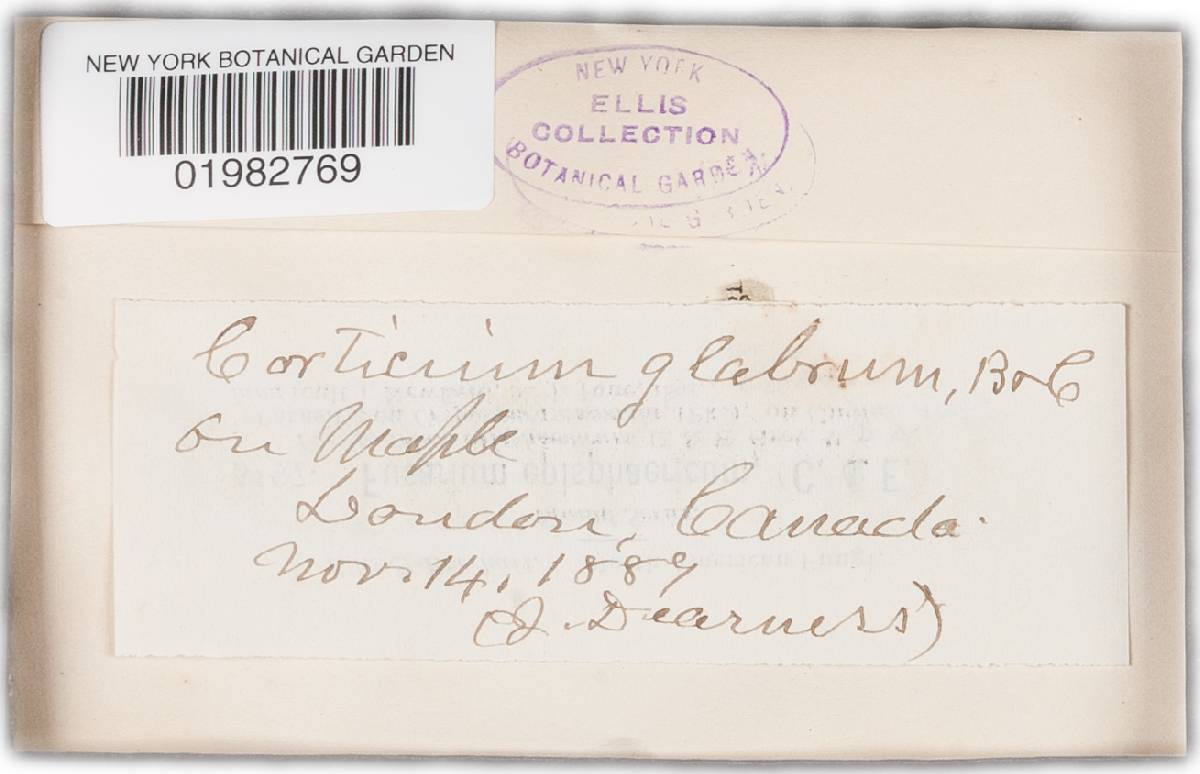 NEW YORK BOTANICAL GARDEN
01982769
NEW YORK
ELLIS
COLLECTION
BOTANICAL GARDEN.
Corticium glabrum, B&C
on Maple
London, Canada.
Nov. 14, 1889
(J. Dearness)